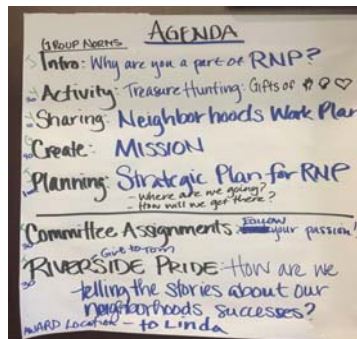 AGENDA
GROUP NORMS
Intro: Why are you a part of RNP?
Activity: Treasure Hunting: Gifts of
Sharing: Neighborhoods Work Plan
Create: MISSION
Planning: Strategic Plan for RNP
- Where are we going?
- How will we get there?
Committee Assignments: Follow your passion!
Give to Tom
RIVERSIDE PRIDE: How are we
telling the stories about our
neighborhoods successes?
AWARD Location - to Linda